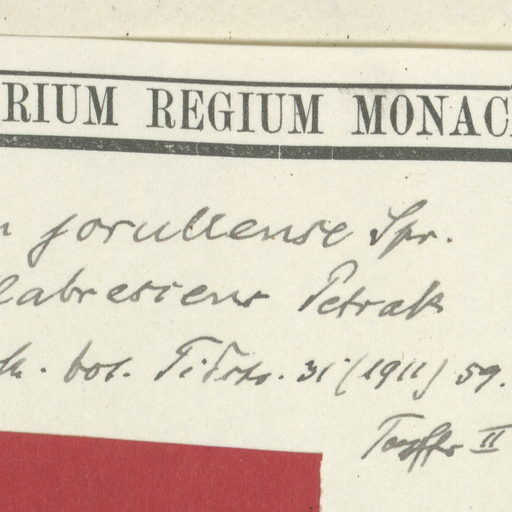 RIUM REGIUM MONAC
n jorullense Spr.
labrescens Petrak
bot. Tidsk. 31 (1911) 59.
II